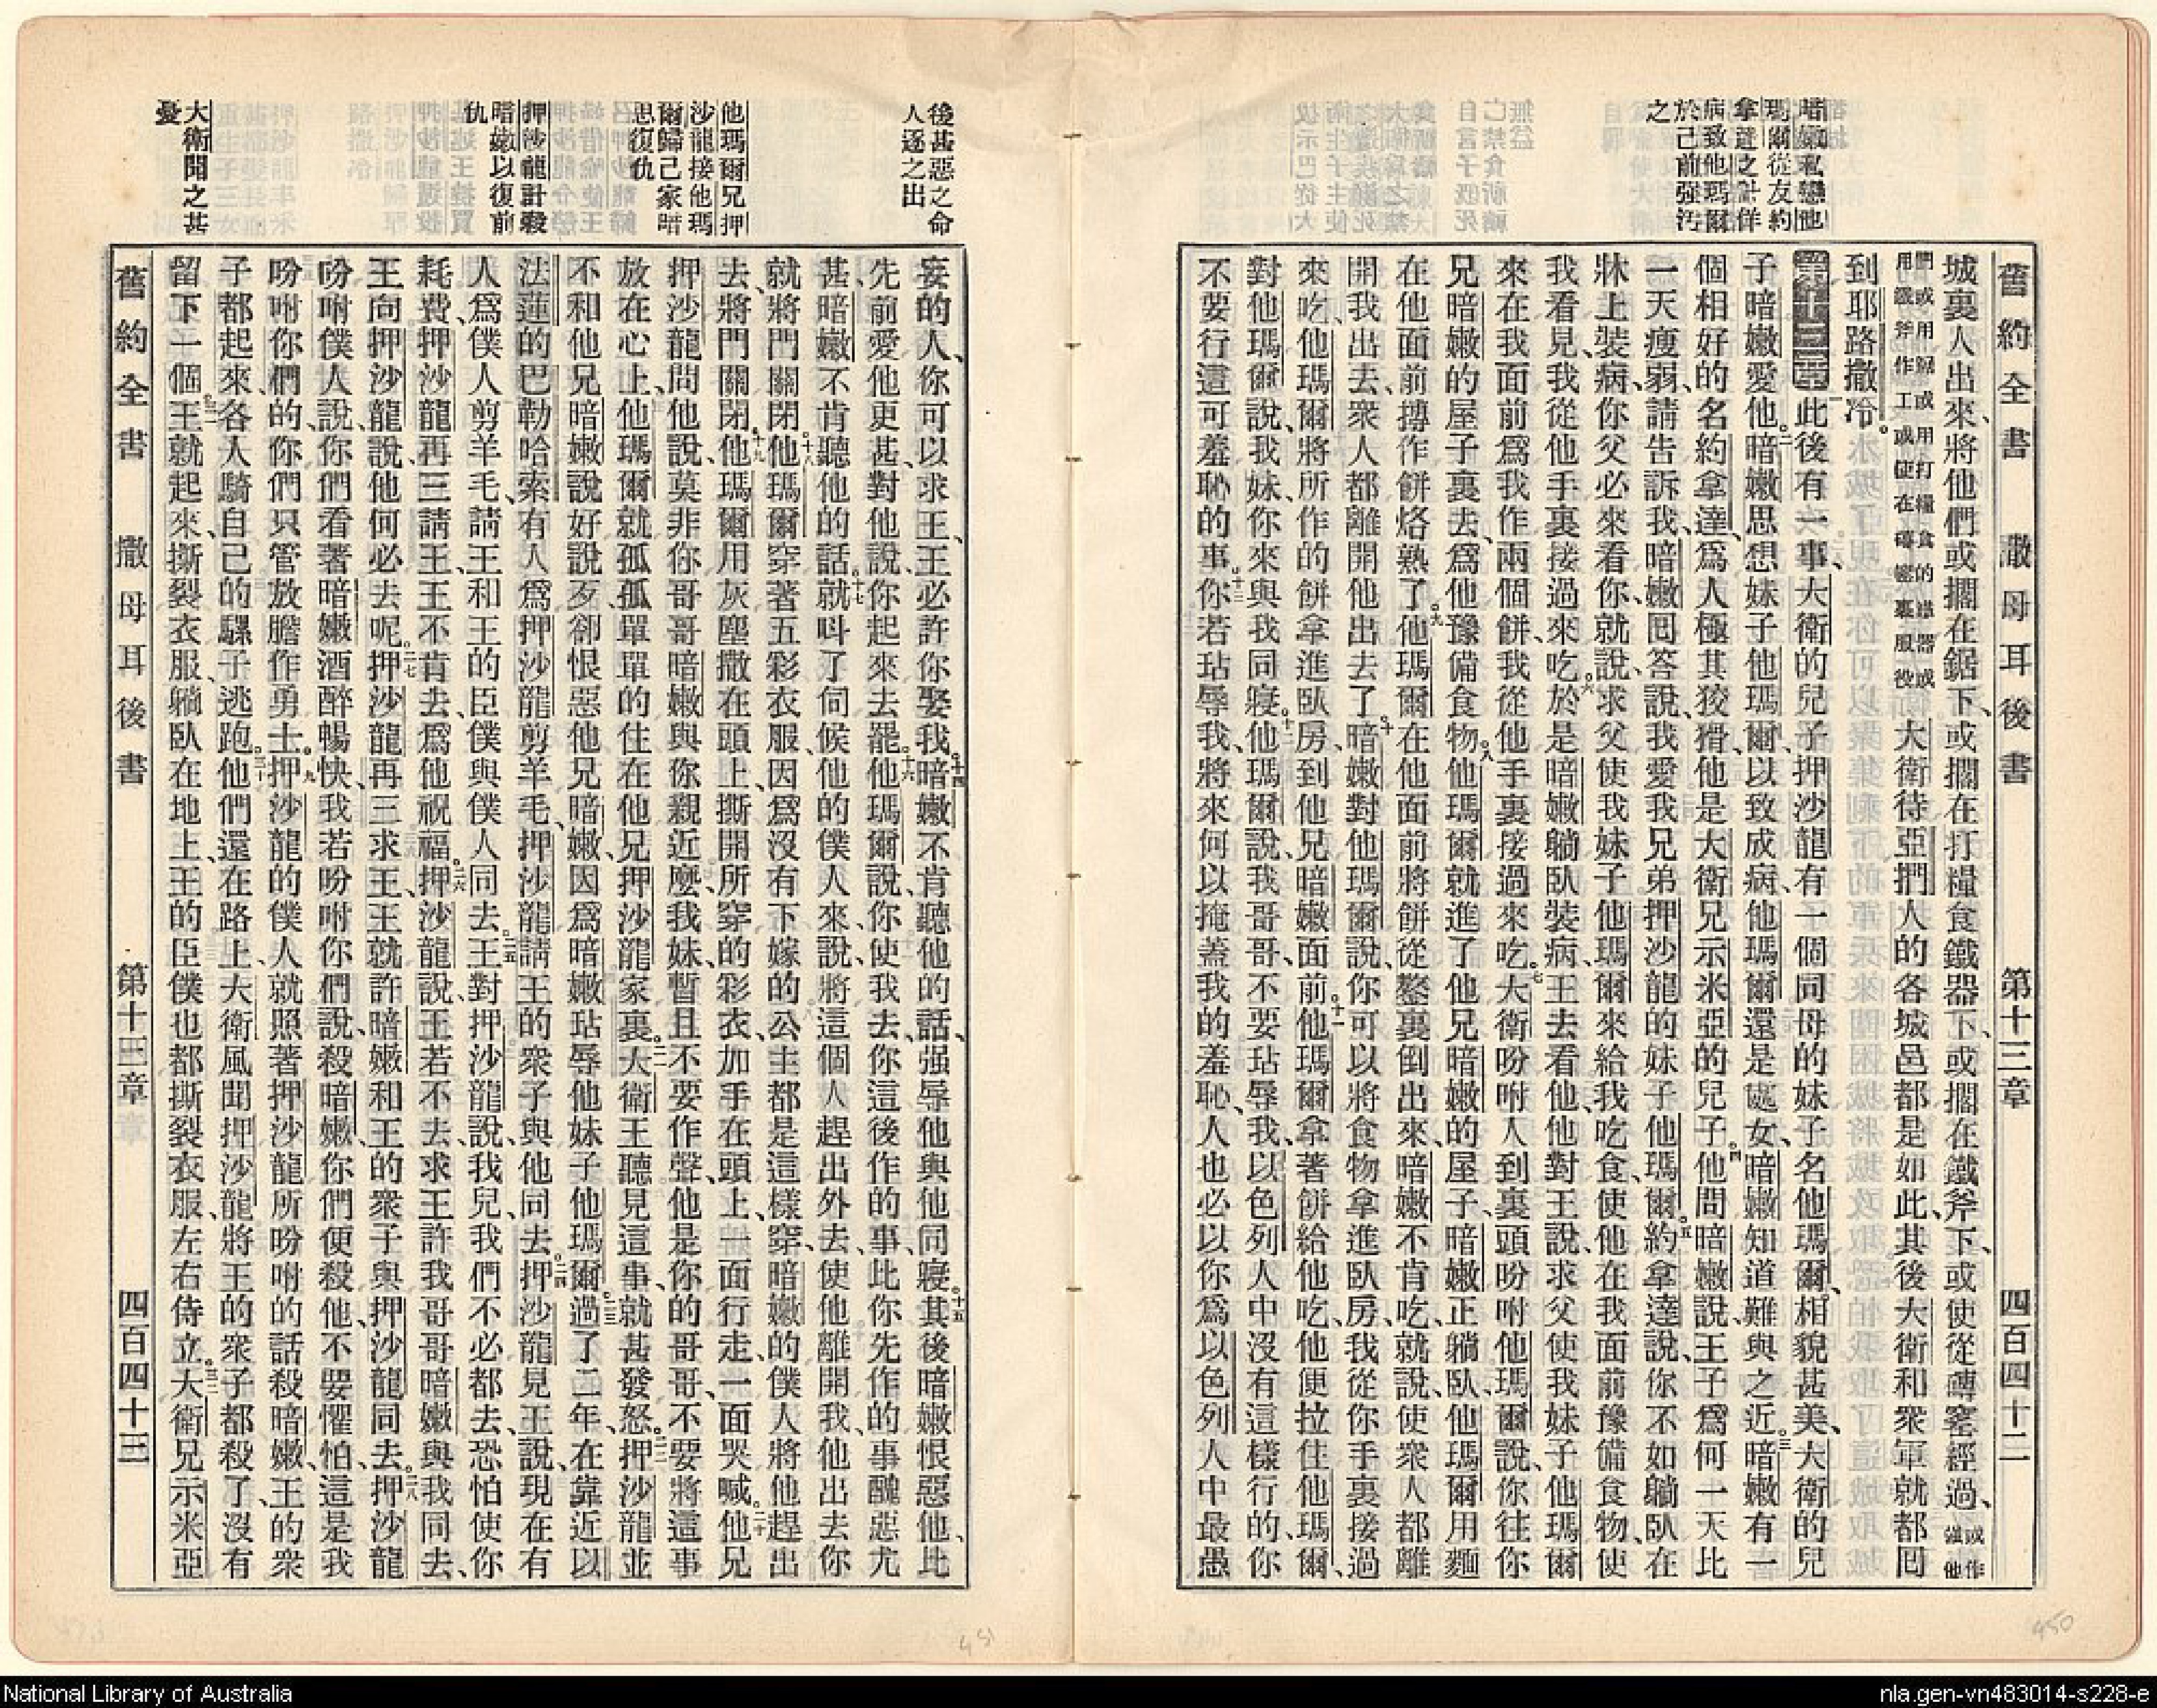 舊約全書 撒母耳後書 第十三章 四百四十二
暗嫩私戀他
瑪爾從友約
拿達之計佯
病致他瑪爾
於己前强污
之
城裏人出來、將他們或擱在鋸下、或擱在打糧食鐵器下、或擱在鐵斧下、或使從磚窰經過、或作强他
用鋸或用打糧食的鐵器或
用鐵斧作工或使在磚窰裏服役
大衛待亞捫人的各城邑都是如此、其後大衛和衆軍就都囘
到耶路撒冷。
第十三章 一此後有一事、大衛的兒子押沙龍有一個同母的妹子名他瑪爾、相貌甚美、大衛的兒
子暗嫩愛他。二暗嫩思想妹子他瑪爾、以致成病、他瑪爾還是處女、暗嫩知道難與之近。三暗嫩有一
個相好的名約拿達、爲人極其狡猾、他是大衛兄示米亞的兒子。四他問暗嫩說、王子爲何一天比
一天瘦弱、請告訴我、暗嫩囘答說、我愛我兄弟押沙龍的妹子他瑪爾。五約拿達說、你不如躺臥在
牀上裝病、你父必來看你、你就說、求父使我妹子他瑪爾來給我吃食、使他在我面前豫備食物、使
我看見、我從他手裏接過來吃。六於是暗嫩躺臥裝病、王去看他、他對王說、求父使我妹子他瑪爾
來在我面前爲我作兩個餅、我從他手裏接過來吃。七大衛吩咐人到裏頭吩咐他瑪爾說、你往你
兄暗嫩的屋子裏去、爲他豫備食物。八他瑪爾就進了他兄暗嫩的屋子、暗嫩正躺臥、他瑪爾用麵
在他面前摶作餅烙熟了。九他瑪爾在他面前將餅從鏊裏倒出來、暗嫩不肯吃、就說、使衆人都離
開我出去、衆人都離開他出去了。十暗嫩對他瑪爾說、你可以將食物拿進臥房、我從你手裏接過
來吃、他瑪爾將所作的餅拿進臥房、到他兄暗嫩面前。十一他瑪爾拿著餅給他吃、他便拉住他瑪爾、
對他瑪爾說、我妹、你來與我同寢。十二他瑪爾說、我哥哥、不要玷辱我、以色列人中沒有這樣行的、你
不要行這可羞恥的事。十三你若玷辱我、將來何以掩蓋我的羞恥、人也必以你爲以色列人中最愚
後甚惡之命
人逐之出
他瑪爾兄押
沙龍接他瑪
爾歸己家暗
思復仇
押沙龍計殺
暗嫩以復前
仇
大衛聞之甚
憂
妄的人、你可以求王、王必許你娶我。十四暗嫩不肯聽他的話、强辱他與他同寢。十五其後暗嫩恨惡他、比
先前愛他更甚、對他說、你起來去罷。十六他瑪爾說、你使我去、你這後作的事、比你先作的事醜惡尤
甚、暗嫩不肯聽他的話。十七就呌了伺候他的僕人來、說、將這個人趕出外去、使他離開我、他出去你
就將門關閉。十八他瑪爾穿著五彩衣服、因爲沒有下嫁的公主都是這樣穿、暗嫩的僕人將他趕出
去、將門關閉。十九他瑪爾用灰塵撒在頭上、撕開所穿的彩衣、加手在頭上、一面行走、一面哭喊。二十他兄
押沙龍問他說、莫非你哥哥暗嫩與你親近麽、我妹、暫且不要作聲、他是你的哥哥、不要將這事
放在心上、他瑪爾就孤孤單單的住在他兄押沙龍家裏。二一大衛王聽見這事、就甚發怒。二二押沙龍並
不和他兄暗嫩說好說歹、卻恨惡他兄暗嫩、因爲暗嫩玷辱他妹子他瑪爾。二三過了二年、在靠近以
法蓮的巴勒哈索、有人爲押沙龍剪羊毛、押沙龍請王的衆子與他同去。二四押沙龍見王說、現在有
人爲僕人剪羊毛、請王和王的臣僕與僕人同去。二五王對押沙龍說、我兒、我們不必都去、恐怕使你
耗費、押沙龍再三請王、王不肯去、爲他祝福。二六押沙龍說、王若不去、求王許我哥哥暗嫩與我同去、
王向押沙龍說、他何必去呢。二七押沙龍再三求王、王就許暗嫩和王的衆子與押沙龍同去。二八押沙龍
吩咐僕人說、你們看著暗嫩酒醉暢快、我若吩咐你們說、殺暗嫩、你們便殺他、不要懼怕、這是我
吩咐你們的、你們只管放膽作勇士。二九押沙龍的僕人就照著押沙龍所吩咐的話、殺暗嫩、王的衆
子都起來、各人騎自己的騾子逃跑。三十他們還在路上、大衛風聞押沙龍將王的衆子都殺了、沒有
留下一個。三一王就起來、撕裂衣服、躺臥在地上、王的臣僕也都撕裂衣服、左右侍立。三二大衛兄示米亞
舊約全書 撒母耳後書 第十三章 四百四十三
451
450
National Library of Australia
nla.gen-vn483014-s228-e